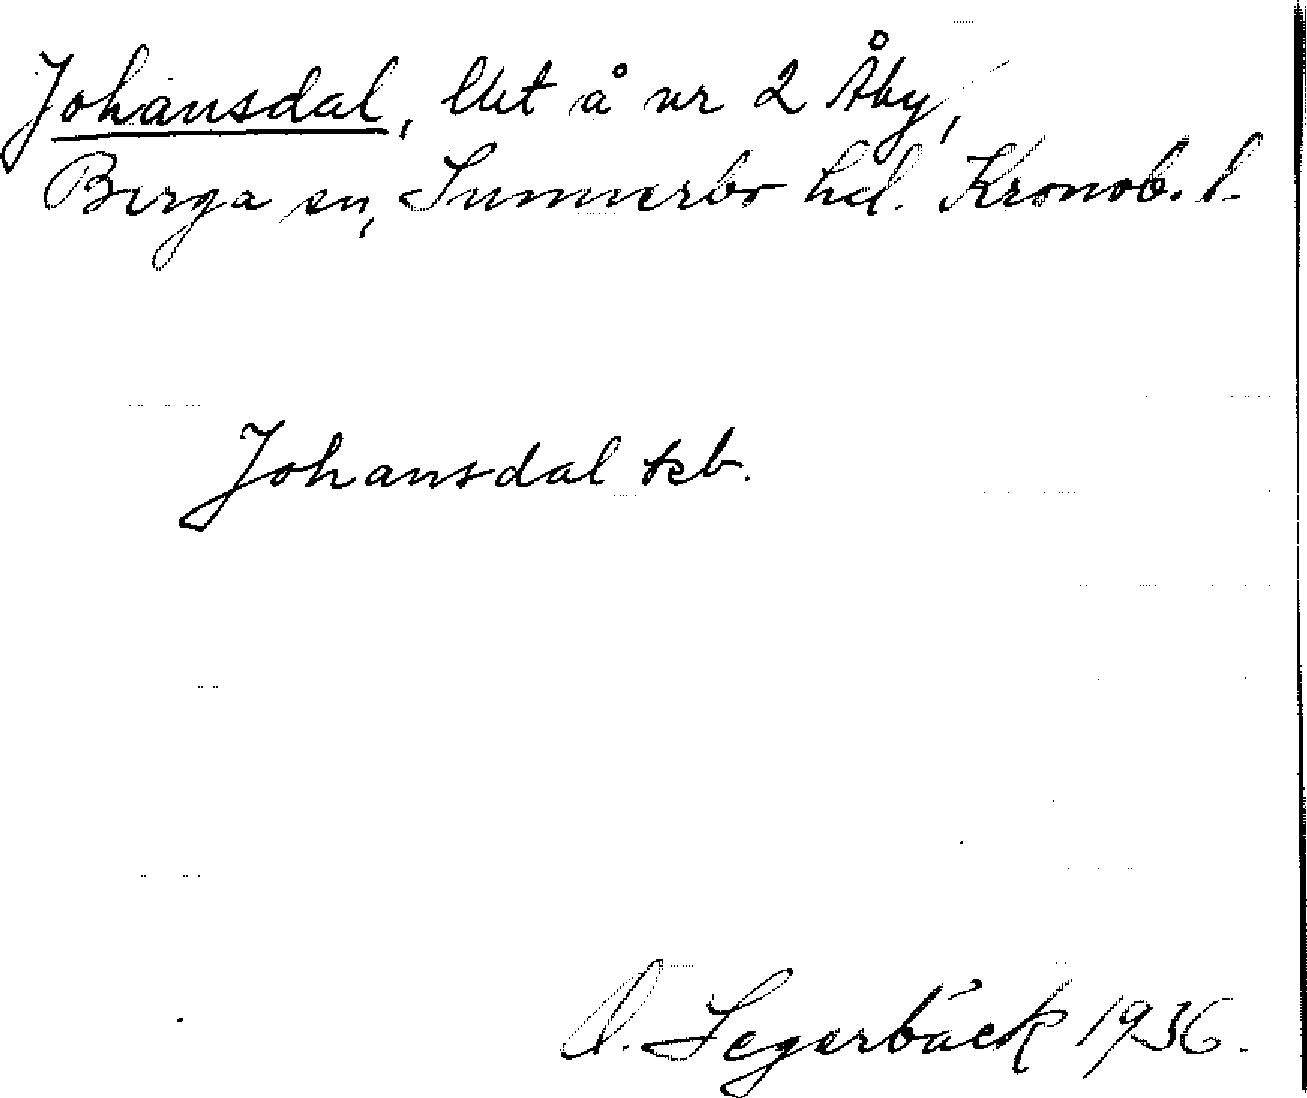 Johansdal, lht å nr 2 Åby,
Berga sn, Sunnerbo hd. Kronob. l.
Johansdal teb.
O. Segerbäck 1936.